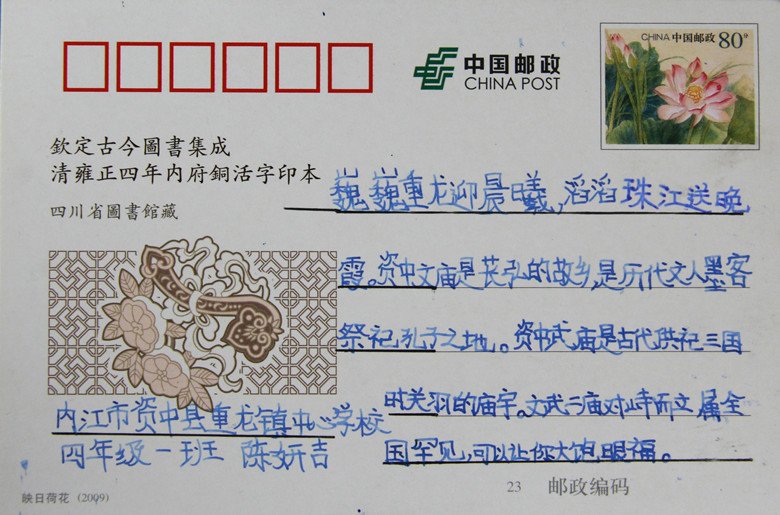 中国邮政
CHINA POST
CHINA 中国邮政 80分
钦定古今圖書集成
清雍正四年内府銅活字印本
四川省圖書館藏
巍巍重龙迎晨曦,滔滔珠江送晚
霞。资中文庙是苌弘的故乡,是历代文人墨客
祭祀孔子之地。资中武庙是古代供祀三国
时关羽的庙宇。文武二庙对峙而立,属全
国罕见,可以让你大饱眼福。
内江市资中县重龙镇中心学校
四年级一班 陈妍吉
映日荷花 (2009)
23 邮政编码